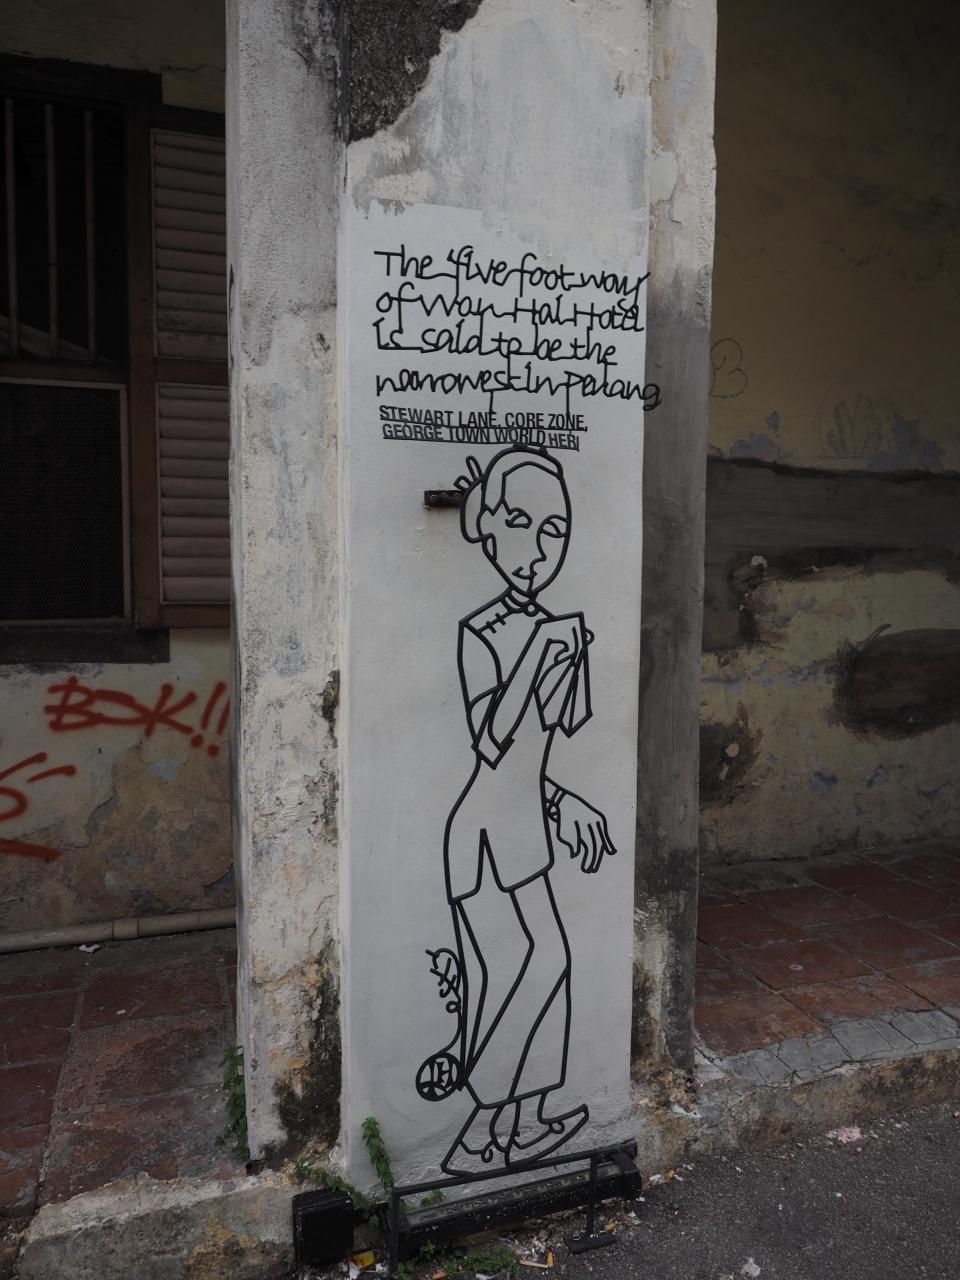 The five foot way
of Wan Hai Hotel
is said to be the
narrowest in Penang
STEWART LANE, CORE ZONE,
GEORGE TOWN WORLD HERI
BDK!!